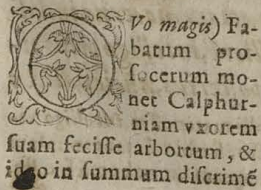 QVo magis) Fa-
batum pro-
socerum mo-
net Calphur-
niam vxorem
suam fecisse abortum, &
ideo in summum discrimē